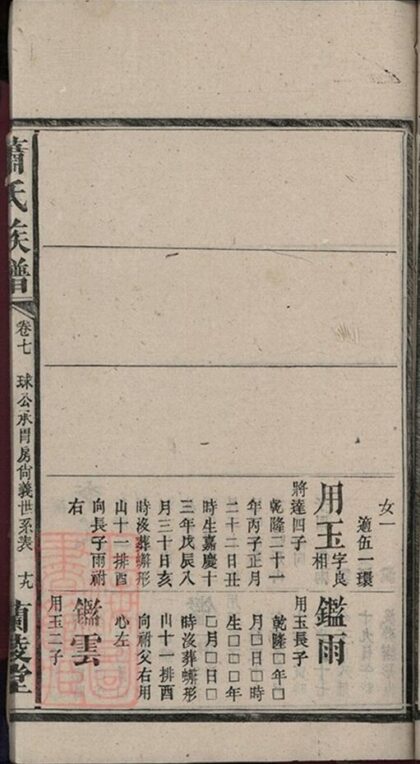 女一
適伍一環
用玉
字良
相
將達四子
乾隆二十一
年丙子正月
二十二日丑
時生嘉慶十
三年戊辰八
月三十日亥
時沒葬蠏形
山十一排酉
向長子雨祔
右
鑑雨
用玉長子
乾隆□年□
月□日□時
生□□□年
□月□日□
時沒葬蠏形
山十一排酉
向祔父右用
心左
鑑雲
用玉二子
蕭氏族譜
卷七
球公承胄房尙義世系表
十九
蘭陵堂